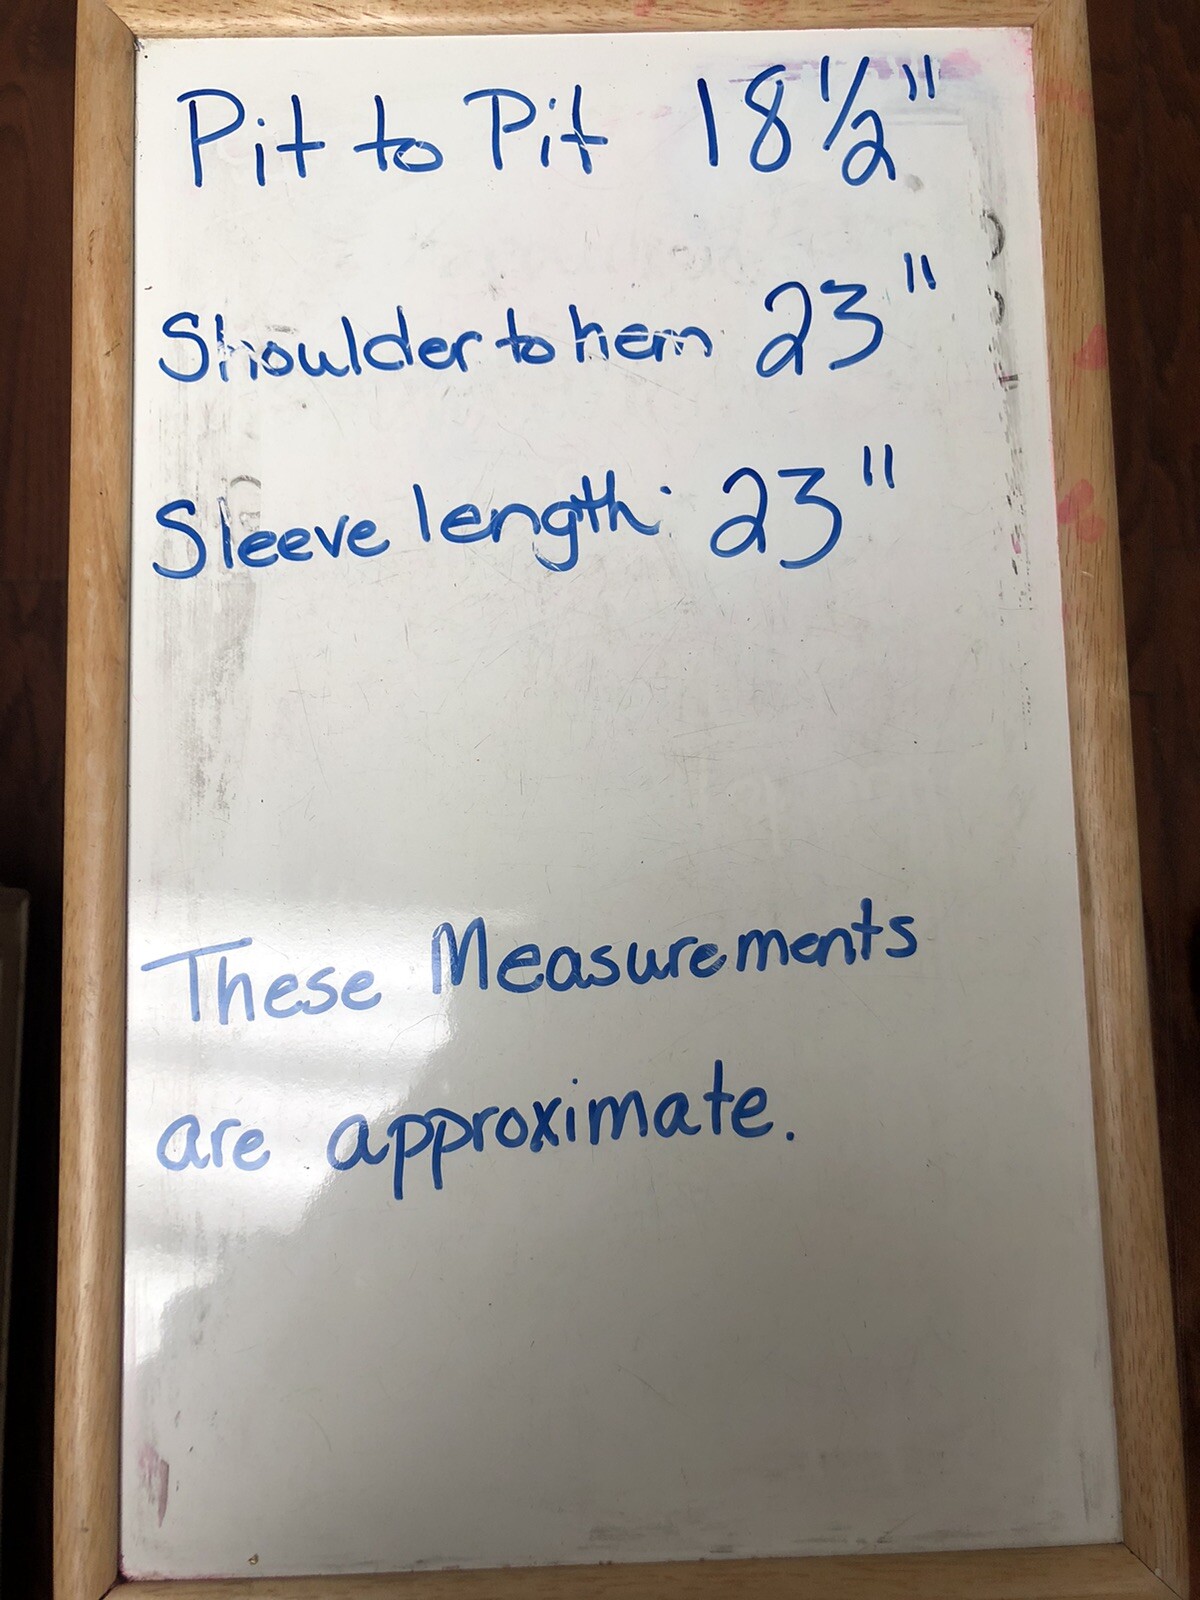 Pit to Pit 18 1/2"
Shoulder to hem 23"
Sleeve length: 23"
These Measurements
are approximate.